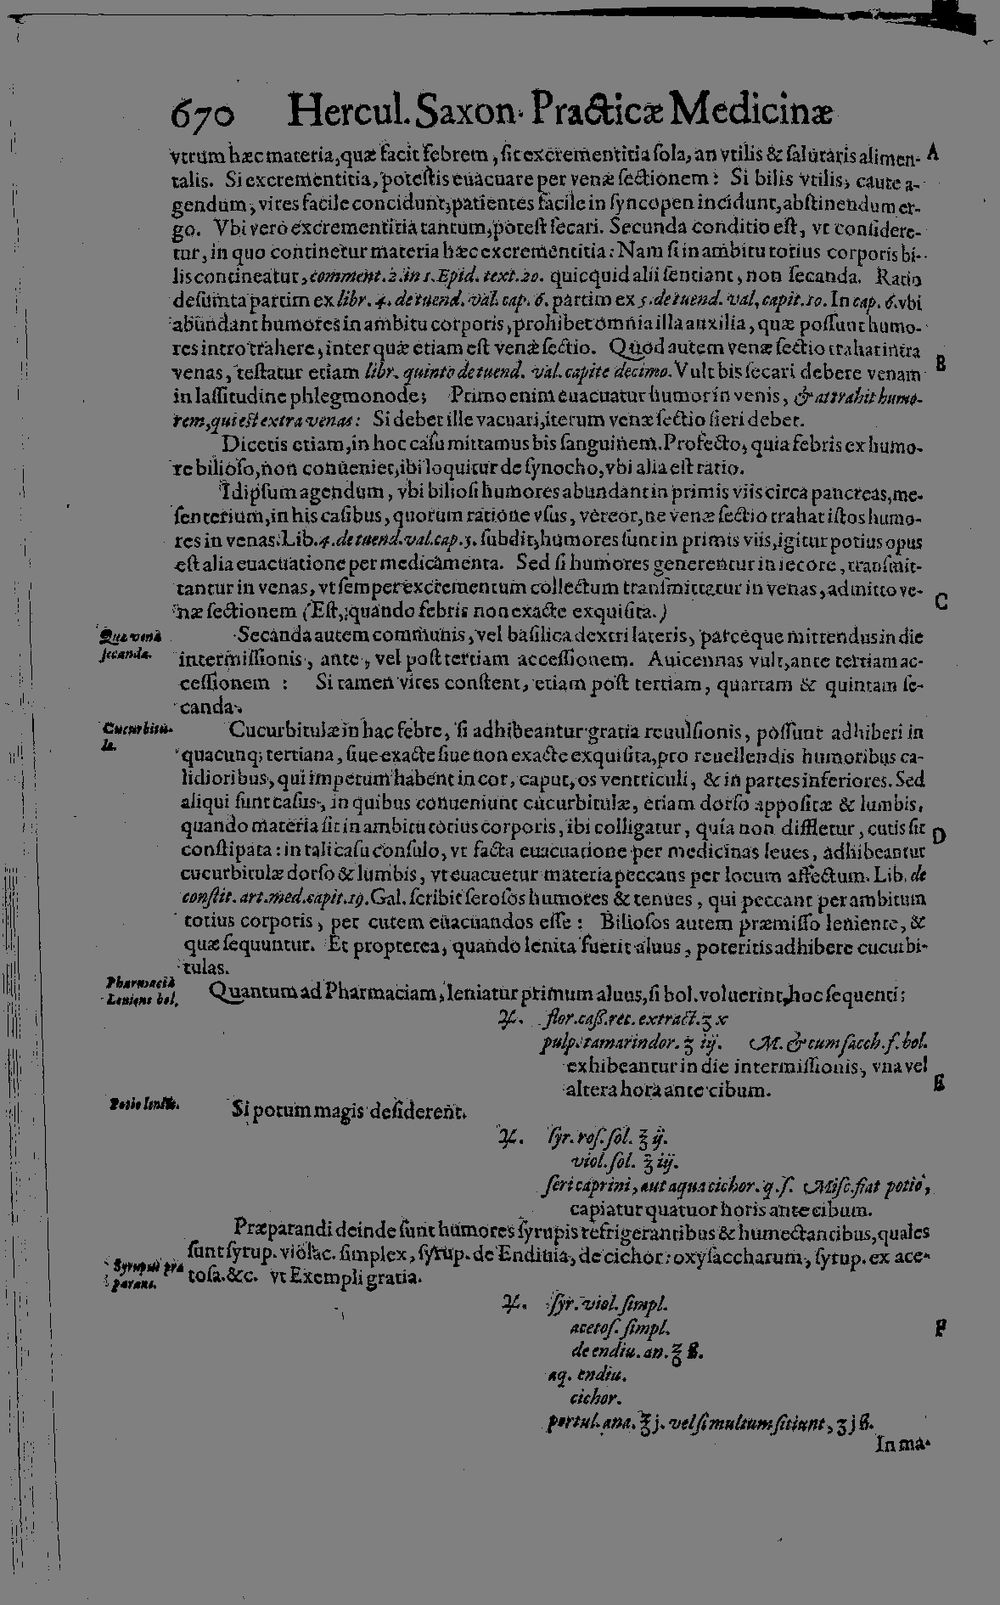 670 Hercul. Saxon. Practicæ Medicinæ
vtrum hæc materia, quæ facit febrem, sit excrementitia sola, an vtilis & salutaris alimen- A
talis. Si excrementitia, potestis euacuare per venæ sectionem: Si bilis vtilis, caute a-
gendum, vires facile concidunt, patientes facile in syncopen incidunt, abstinendum er-
go. Vbi vero excrementitia tantum, potest secari. Secunda conditio est, vt considere-
tur, in quo continetur materia hæc excrementitia: Nam si in ambitu totius corporis bi-
lis contineatur, comment. 2. in 1. Epid. text. 20. quicquid alii sentiant, non secanda. Ratio
desumta partim ex libr. 4. de tuend. val. cap. 6. partim ex 5. de tuend. val, capit. 10. In cap. 6. vbi
abundant humores in ambitu corporis, prohibet omnia illa auxilia, quæ possunt humo-
res intro trahere, inter quæ etiam est venæ sectio. Quod autem venæ sectio trahat intra B
venas, testatur etiam libr. quinto de tuend. val. capite decimo. Vult bis secari debere venam
in lassitudine phlegmonode; Primo enim euacuatur humor in venis, & attrahit humo-
rem, qui est extra venas: Si debet ille vacuari, iterum venæ sectio fieri debet.
Dicetis etiam, in hoc casu mittamus bis sanguinem. Profecto, quia febris ex humo-
re bilioso, non conueniet, ibi loquitur de synocho, vbi alia est ratio.
Idipsum agendum, vbi biliosi humores abundant in primis viis circa pancreas, me-
senterium, in his casibus, quorum ratione vsus, vereor, ne venæ sectio trahat istos humo-
res in venas. Lib. 4. de tuend. val. cap. 5. subdit, humores sunt in primis viis, igitur potius opus
est alia euacuatione per medicamenta. Sed si humores generentur in iecore, transmit-
tantur in venas, vt semper excrementum collectum transmittetur in venas, admitto ve-
næ sectionem (Est, quando febris non exacte exquisita.) C
Quæ vena
secanda.
Secanda autem communis, vel basilica dextri lateris, parceque mittendus in die
intermissionis, ante, vel post tertiam accessionem. Auicennas vult, ante tertiam ac-
cessionem: Si tamen vires constent, etiam post tertiam, quartam & quintam se-
canda.
Cucurbitu-
læ.
Cucurbitulæ in hac febre, si adhibeantur gratia reuulsionis, possunt adhiberi in
quacunq; tertiana, siue exacte siue non exacte exquisita, pro reuellendis humoribus ca-
lidioribus, qui impetum habent in cor, caput, os ventriculi, & in partes inferiores. Sed
aliqui sunt casus, in quibus conueniunt cucurbitulæ, etiam dorso appositæ & lumbis,
quando materia sit in ambitu totius corporis, ibi colligatur, quia non diffletur, cutis sit D
constipata: in tali casu consulo, vt facta euacuatione per medicinas leues, adhibeantur
cucurbitulæ dorso & lumbis, vt euacuetur materia peccans per locum affectum. Lib. de
constit. art. med. capit. 19. Gal. scribit serosos humores & tenues, qui peccant per ambitum
totius corporis, per cutem euacuandos esse: Biliosos autem præmisso leniente, &
quæ sequuntur. Et propterea, quando lenita fuerit aluus, poteritis adhibere cucurbi-
tulas.
Pharmacia
Leniens bol.
Quantum ad Pharmaciam, leniatur primum aluus, si bol. voluerint, hoc sequenti:
♃. flor. caß. rec. extract. ʒ x
pulp. tamarindor. ʒ iij. M. & cum sacch. f. bol.
exhibeantur in die intermissionis, vna vel
altera hora ante cibum. E
Potio leniẽs.
Si potum magis desiderent.
♃. syr. ros. sol. ℥ ij.
viol. sol. ℥ iij.
seri caprini, aut aqua cichor. q. s. Misc. fiat potio,
capiatur quatuor horis ante cibum.
Præparandi deinde sunt humores syrupis refrigerantibus & humectantibus, quales
Syrupus præ
parans.
sunt syrup. violac. simplex, syrup. de Endiuia, de cichor: oxysaccharum, syrup. ex ace-
tosa. &c. vt Exempli gratia.
♃. syr. viol. simpl.
acetos. simpl. F
de endiu. an. ℥ ß.
aq. endiu.
cichor.
portul. ana. ℥ j. vel si multum sitiunt, ʒ j ß.
In ma-